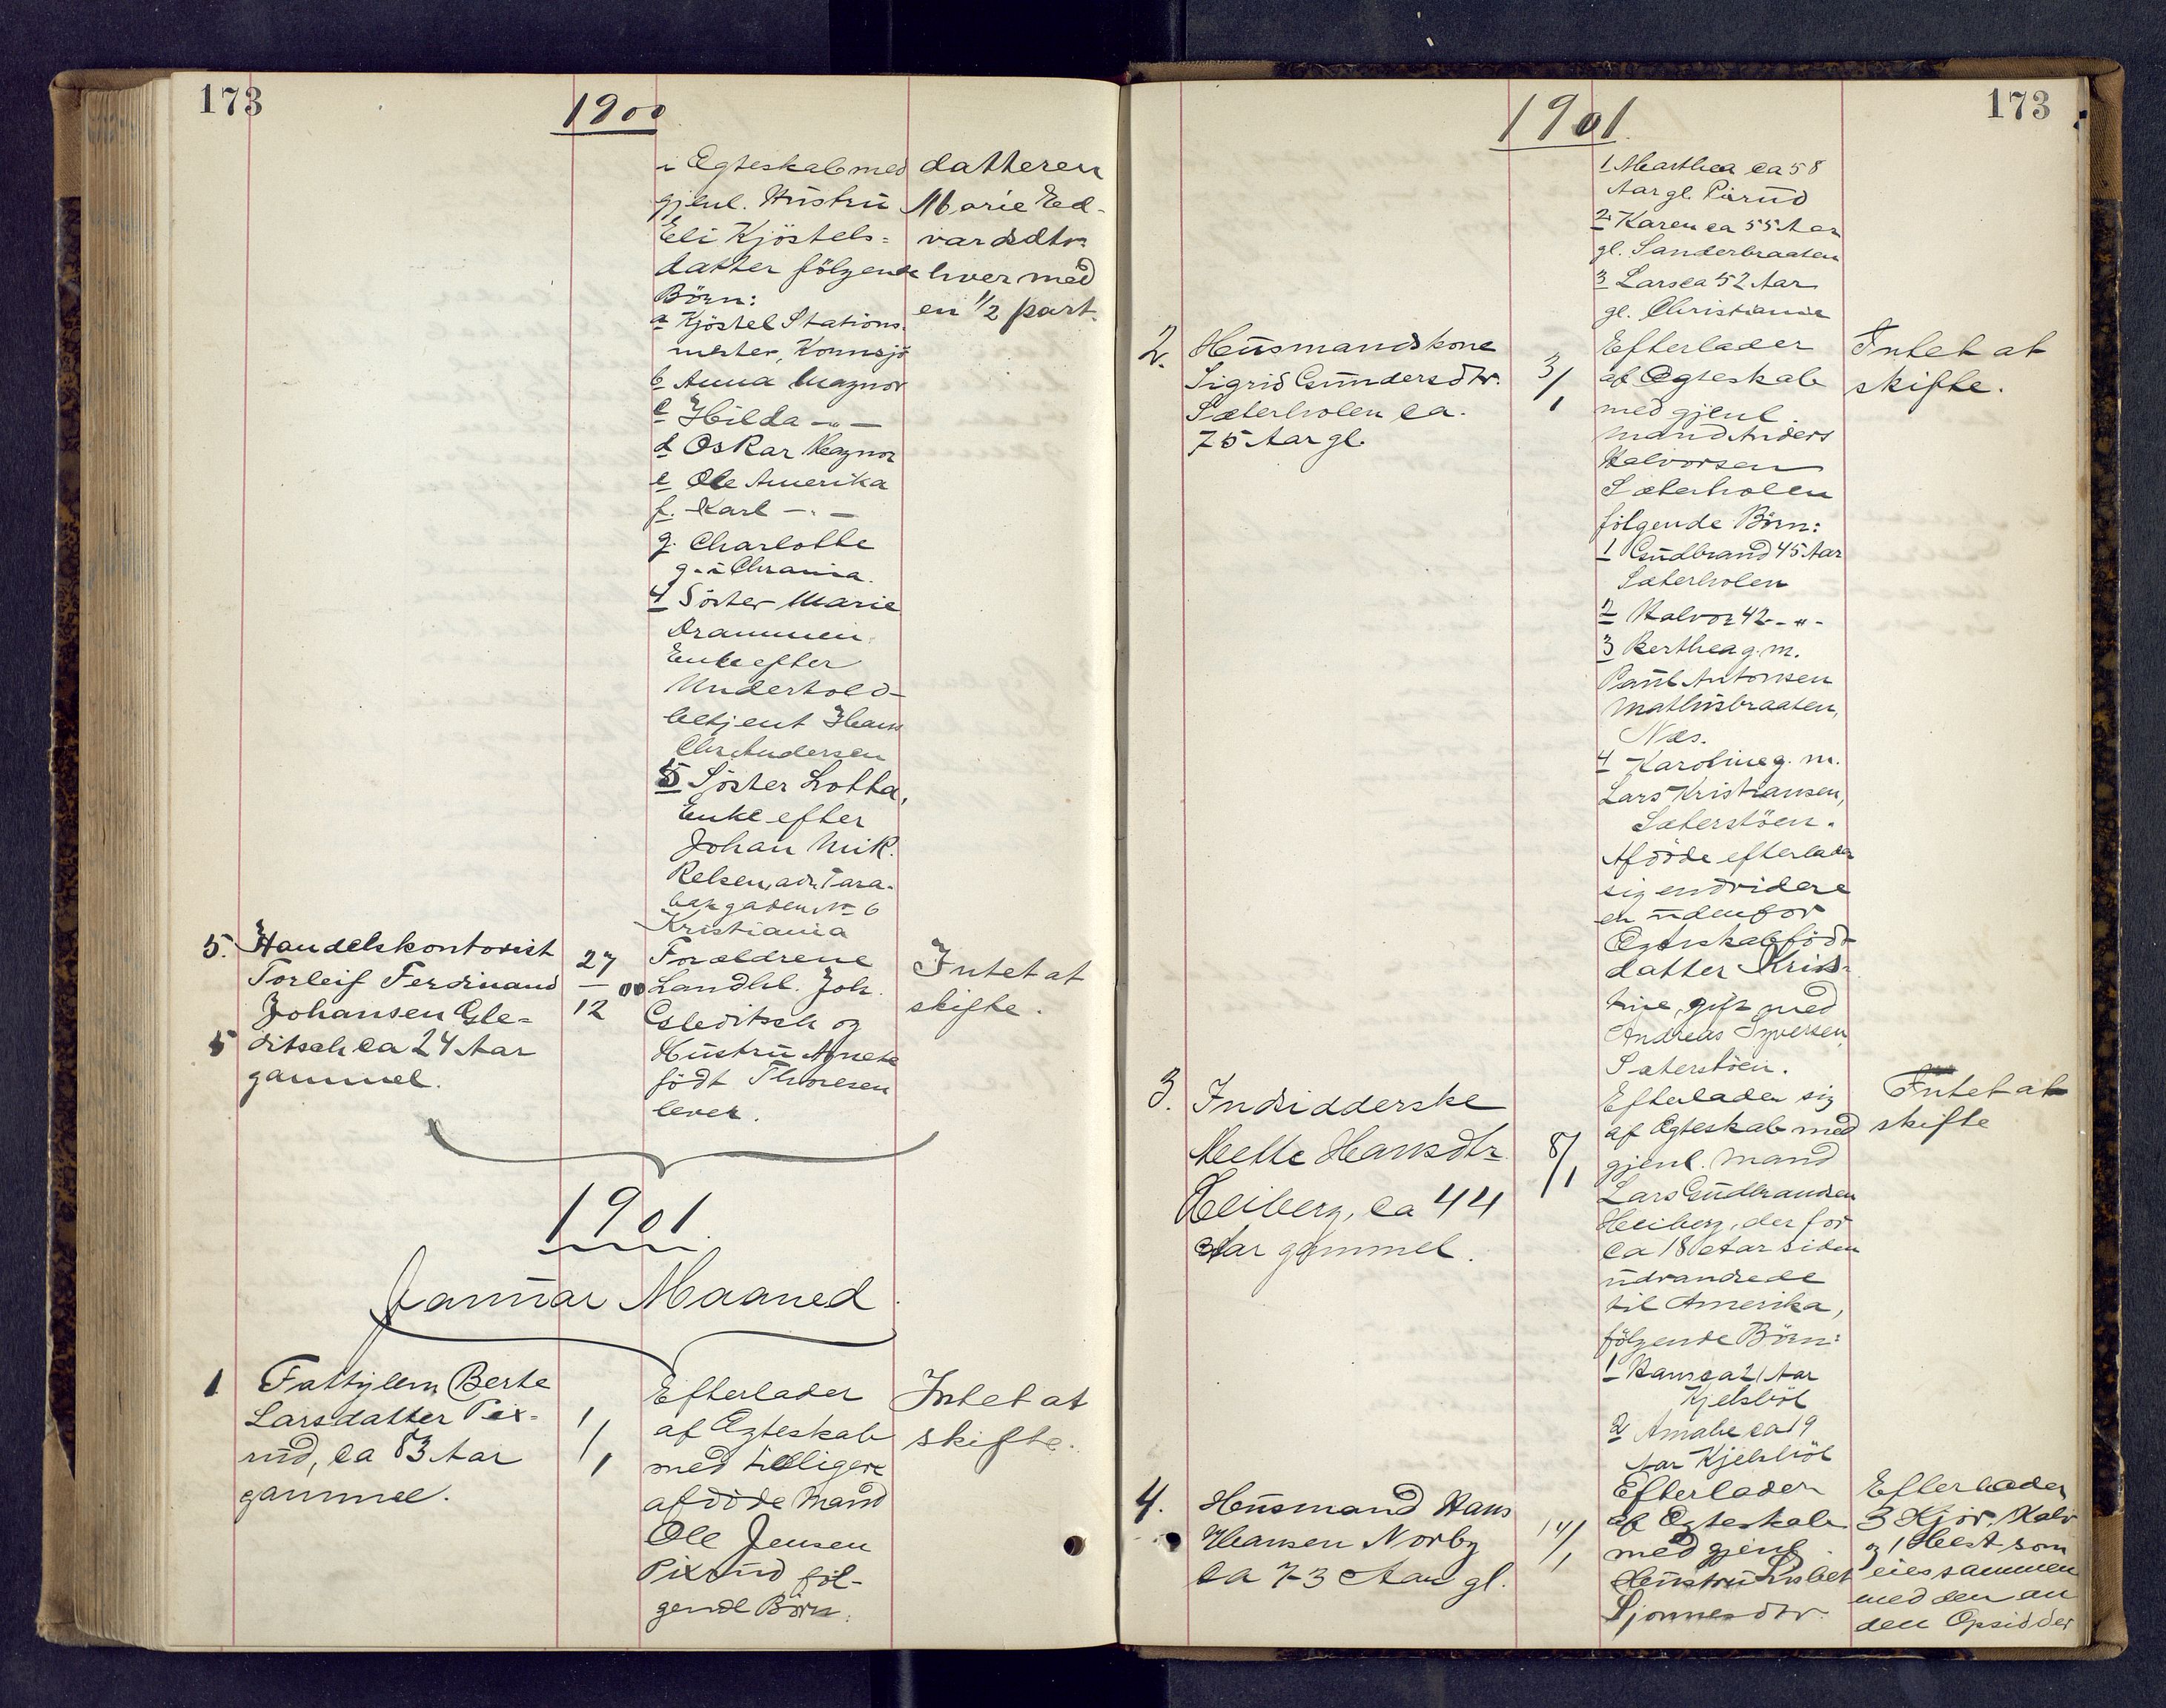 173
1900
i Egteskab med
gjenl. Hustru
Eli Kjöstels=
datter følgende
Börn:
a Kjöstel Stations.
mester, Kornsjö
b Anna Magnor
c Hilda -"-
d Oskar Magnor
e Ole Amerika
f. Karl -"-
g. Charlotte
g. i Chrania.
4 Söster Marie
Drammen
Enke efter
Underhold-
betjent Hans
Chr. Andersen
5 Söster Lotta,
Enke efter
Johan Mik.
Kelsen, adr.
gaden No 6
Kristiania
datteren
Marie Ed-
vardsdtr.
hver med
en 1/2 part.
5. Handelskontorist
Torleif Ferdinand
Johansen Gle=
ditsch ca 24 Aar
gammel.
27
— 00
12
Forældrene
Landhl. Joh.
Gleditsch og
Hustru Agnete
födt Thoresen
lever.
Intet at
skifte.
1901.
Januar Maaned.
1 Fattiglem Berte
Larsdatter Pix-
rud, ca 83 Aar
gammel.
1/1
Efterlader
af Egteskab
med tidligere
afdöde Mand
Ole Jensen
Pixrud föl-
gende Börn:
Intet at
skifte.
1901.
173
1 Marthea ca 58
Aar gl. Pixrud
2 Karen ca 55 Aar
gl. Sanderbraaten
3 Lars ca 52 Aar
gl. Christiania
2. Husmandskone
Sigrid Gundersdtr.
Sæterholen ca.
75 Aar gl.
3/1
Efterlader
af Egteskab
med gjenl.
Mand Anders
Halvorsen
Sæterholen
fölgende Börn:
1 Gudbrand 45 Aar
Sæterholen
2 Halvor 42 -"-
3 Berthea g. m.
Paul Antonsen
Næs.
4 Karoline g. m.
Lars Kristiansen,
Sæterstöen.
Afdöde efterlader
sig endvidere
en udenfor
Egteskab födt
datter Kris-
tine, gift med
Andreas Syversen
Sæterstöen.
Intet at
skifte.
3. Indsidderske
Mette Hansdtr.
Heiberg, ca 44
Aar gammel.
8/1
Efterlader sig
af Egteskab med
gjenl. Mand
Lars Gudbrandsen
Heiberg, der for
ca 18 Aar siden
udvandrede
til Amerika,
fölgende Börn:
1 Hans ca 21 Aar
Kjelsböl
2 Amalie ca 19
Aar Kjelsböl
Intet at
skifte
4. Husmand Hans
Hansen Norby
ca 73 Aar gl.
14/1
Efterlader
af Egteskab
med gjenl.
Hustru Lisbet
Sjonnesdtr.
Efterlader
3 Kjör, Kalv
og 1 Hest som
eies sammen
med den an
den Opsidder